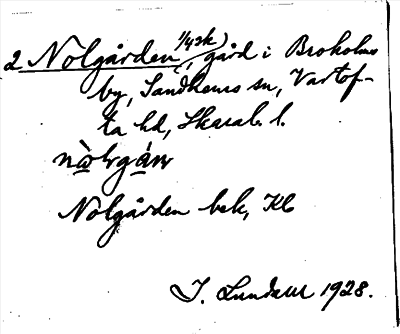 2 Nolgården (1/4 sk), gård i Broholms
by, Sandhems sn, Vartof-
ta hd, Skarab. l.
Nolgården bek, Kb
J. Lundahl 1928.